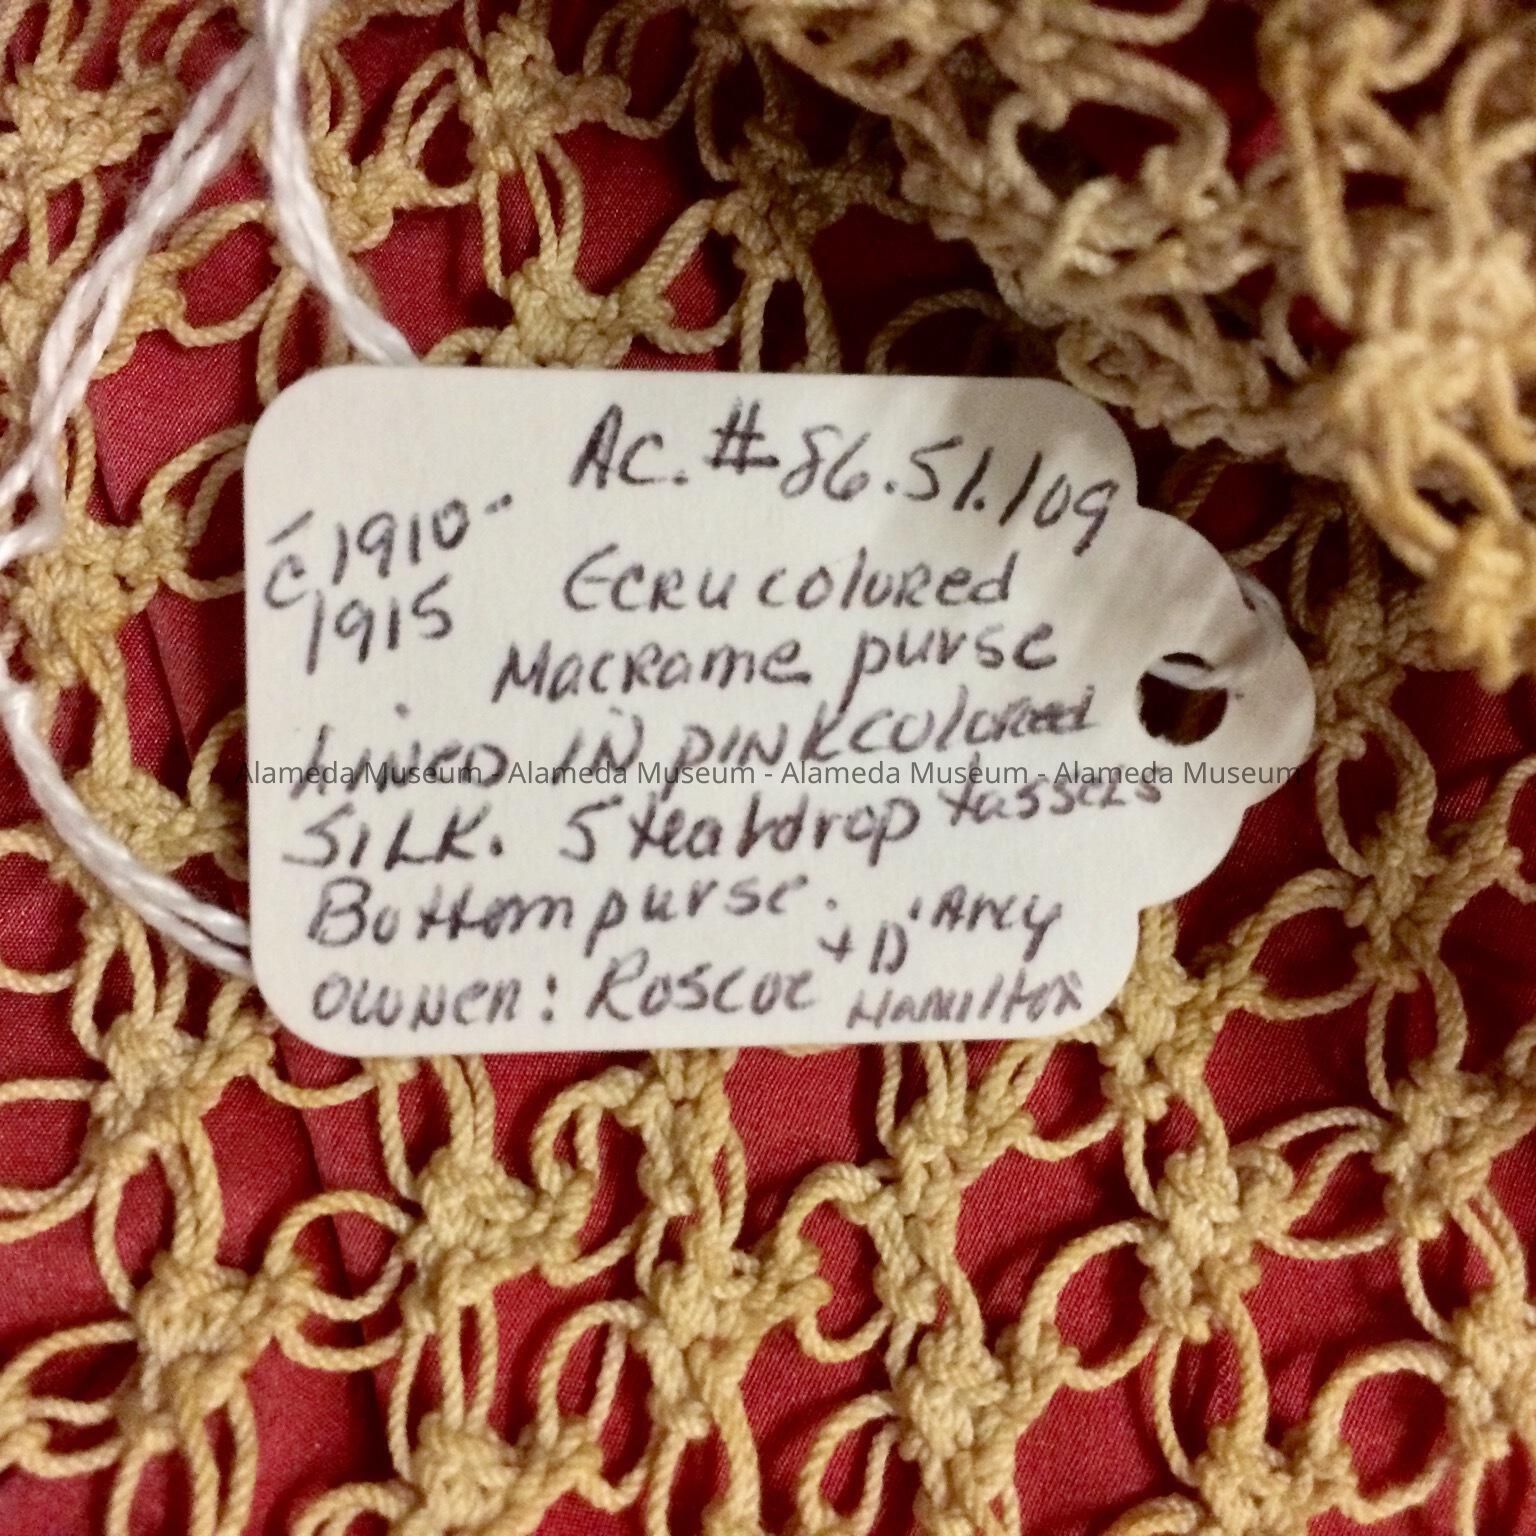 AC. #86.51.109
c 1910-
1915
Ecru colored
Macrame purse
Lined in pink colored
Silk. 5 teardrop tassels
Bottom purse.
Owner: Roscoe + D'Arcy
Hamilton
Alameda Museum - Alameda Museum - Alameda Museum - Alameda Museum